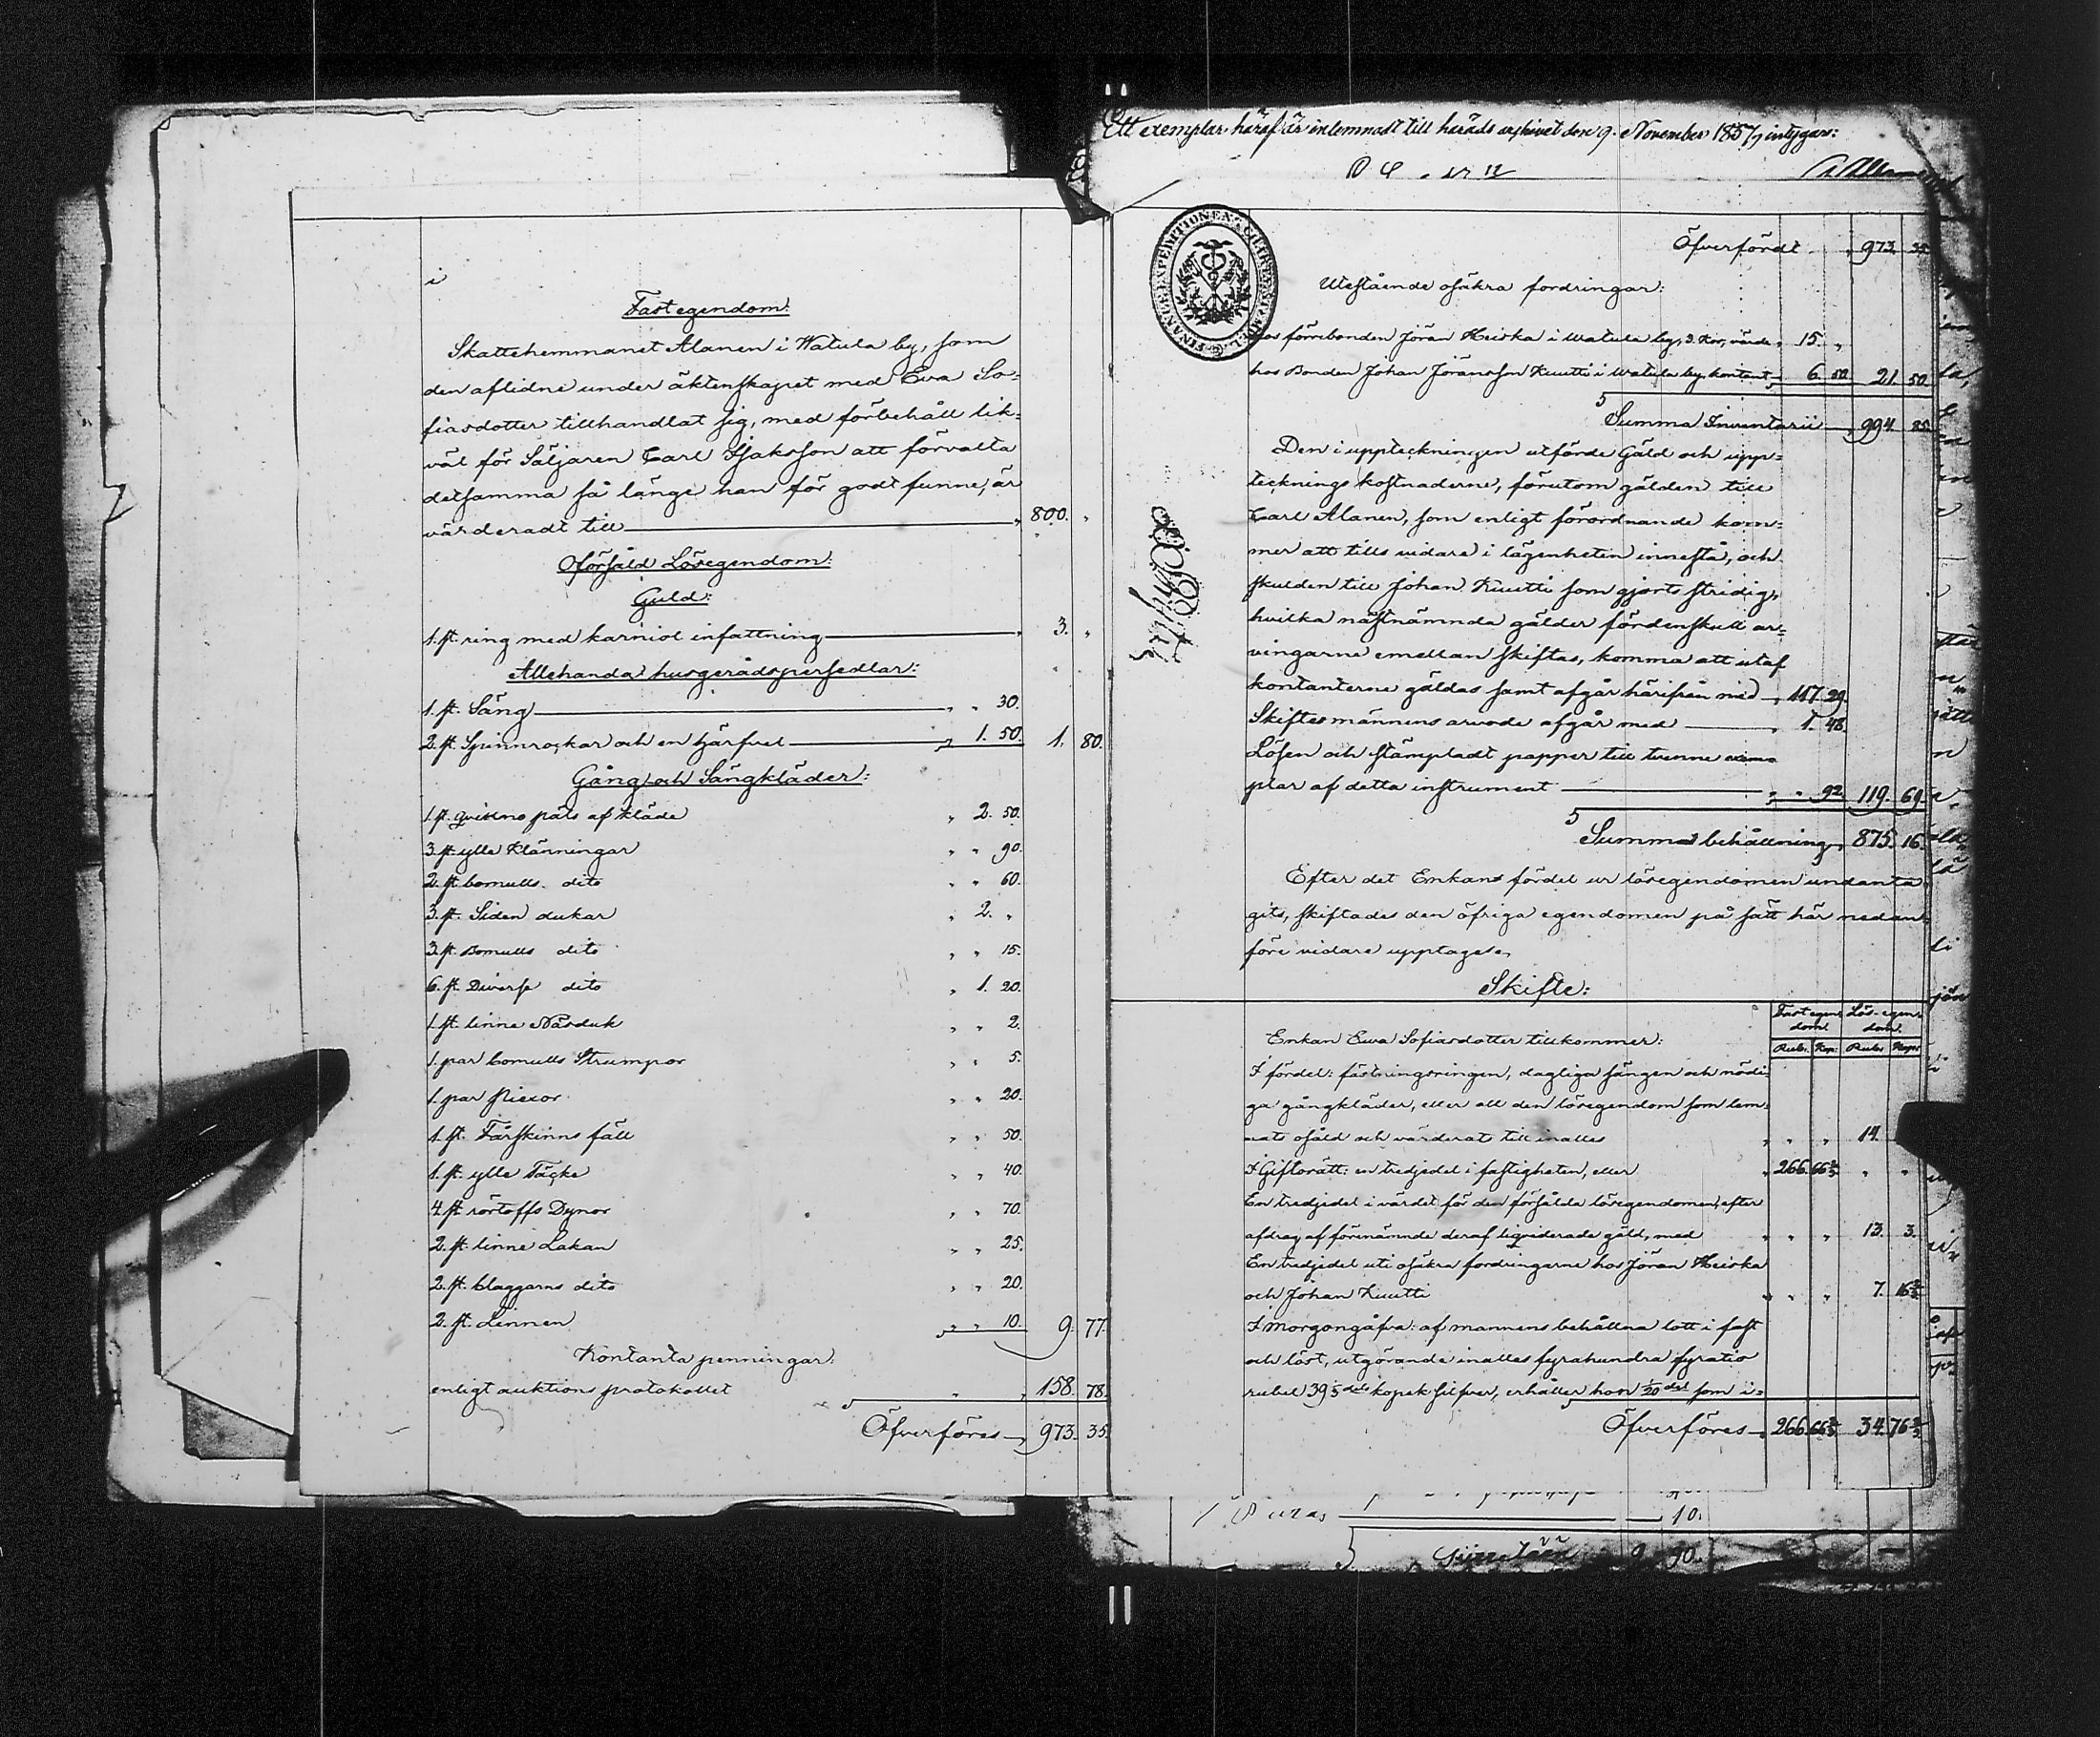 i
Fast egendom:
Skattehemmanet Alanen i Watula by, som
den aflidne under äktenskapet med Eva So=
fiasdotter tillhandlat sig, med förbehåll lik=
väl för Säljaren Carl Isaksson att förvalta
detsamma så länge han för godt funne, är
värderadt till 800. "
Oförsåld Lösegendom:
Guld:
1. st. ring med karniol infattning 3. "
Allehanda husgerådspersedlar:
1. st. Säng " " 30.
2. st. Spinnrockar och en härfvel " 1. 50. 1. 80.
Gång och Sängkläder:
1. st. qvinno päls af kläde " 2. 50.
3. st ylle Klänningar " " 90.
2. st. bomulls dito " " 60.
3. st. Siden dukar " 2. "
3. st Bomulls dito " " 15.
6. st. Diverse dito " 1. 20.
1. st. linne Näsduk " " 2.
1. par bomulls Strumpor " " 5.
1. par Piexor " " 20.
1. st. Fårskinns fäll " " 50.
1. st. ylle Täcke " " 40.
4. st Dynor " " 70.
2. st. linne Lakan " " 25.
2. st. blaggarns dito " " 20.
2. st. Linnen " " 10. 9. 77.
Kontanta penningar:
enligt auktions protokollet " 158. 78.
Öfverföres 973. 35.
Ett exemplar häraf är inlemnadt till härads arkivet den 9. November 1857, intygar:
FINANCE EXPEDITIONENS
Öfverfördt " 973. 35
Utestående osäkra fordringar:
hos förrebonden Jöran Heiska i Watula by, 3. Kor, värde " 15. "
hos Bonden Johan Jöransson Kuutti i Watula by kontant 6. 50 21. 50
S Summa Inventarii 994. 85.
Den i uppteckningen utförde Gäld och upp=
tecknings kostnaderne, förutom gälden till
Carl Alanen, som enligt förordnande kom=
mer att tills vidare i lägenheten innestå, och
skulden till Johan Kuutti som gjorts stridig,
hvilka nästnämnda gälder fördenskull ar=
vingarne emellan skiftas, komma att utaf
kontanterne gäldas samt afgår härifrån med 117. 29.
Skiftesmännens arvode afgår med 1. 48.
Lösen och stämpladt papper till tvenne exem
plar af detta instrument " " 92. 119. 69.
S Summa behållning 875. 16.
Efter det Enkans fördel ur lösegendomen undanta
gits, skiftades den öfriga egendomen på sätt här nedan
före vidare upptages.
Skifte:
Fast egen= dom. Lös- egen= dom.
Rub. Kop. Rub. Kop.
Enkan Ewa Sofiasdotter tillkommer:
I fördel: fästningsringen, dagliga sängen och nödi=
ga gångkläder, eller all den lösegendom som lem=
nats osåld och värderats till inalles " " " 14.
I Giftorätt: en tredjedel i fastigheten, eller " 266. 66 2/3 " "
En tredjedel i värdet för den försålda lösegendomen, efter
afdrag af förenämnde deraf liqviderade gäld, med " " " 13. 3.
En tredjedel uti osäkra fordringarne hos Jöran Heiska
och Johan Kuutti " " " 7. 16 2/3
I Morgongåfva: af mannens behållna lott i fast
och löst, utgörande inalles fyrahundra fyratio
rubel 39 kopek silfver, erhåller hon 1/20 del som i=
Öfverföres 266. 66 2/3 34. 76 2/3
10.
9 90.